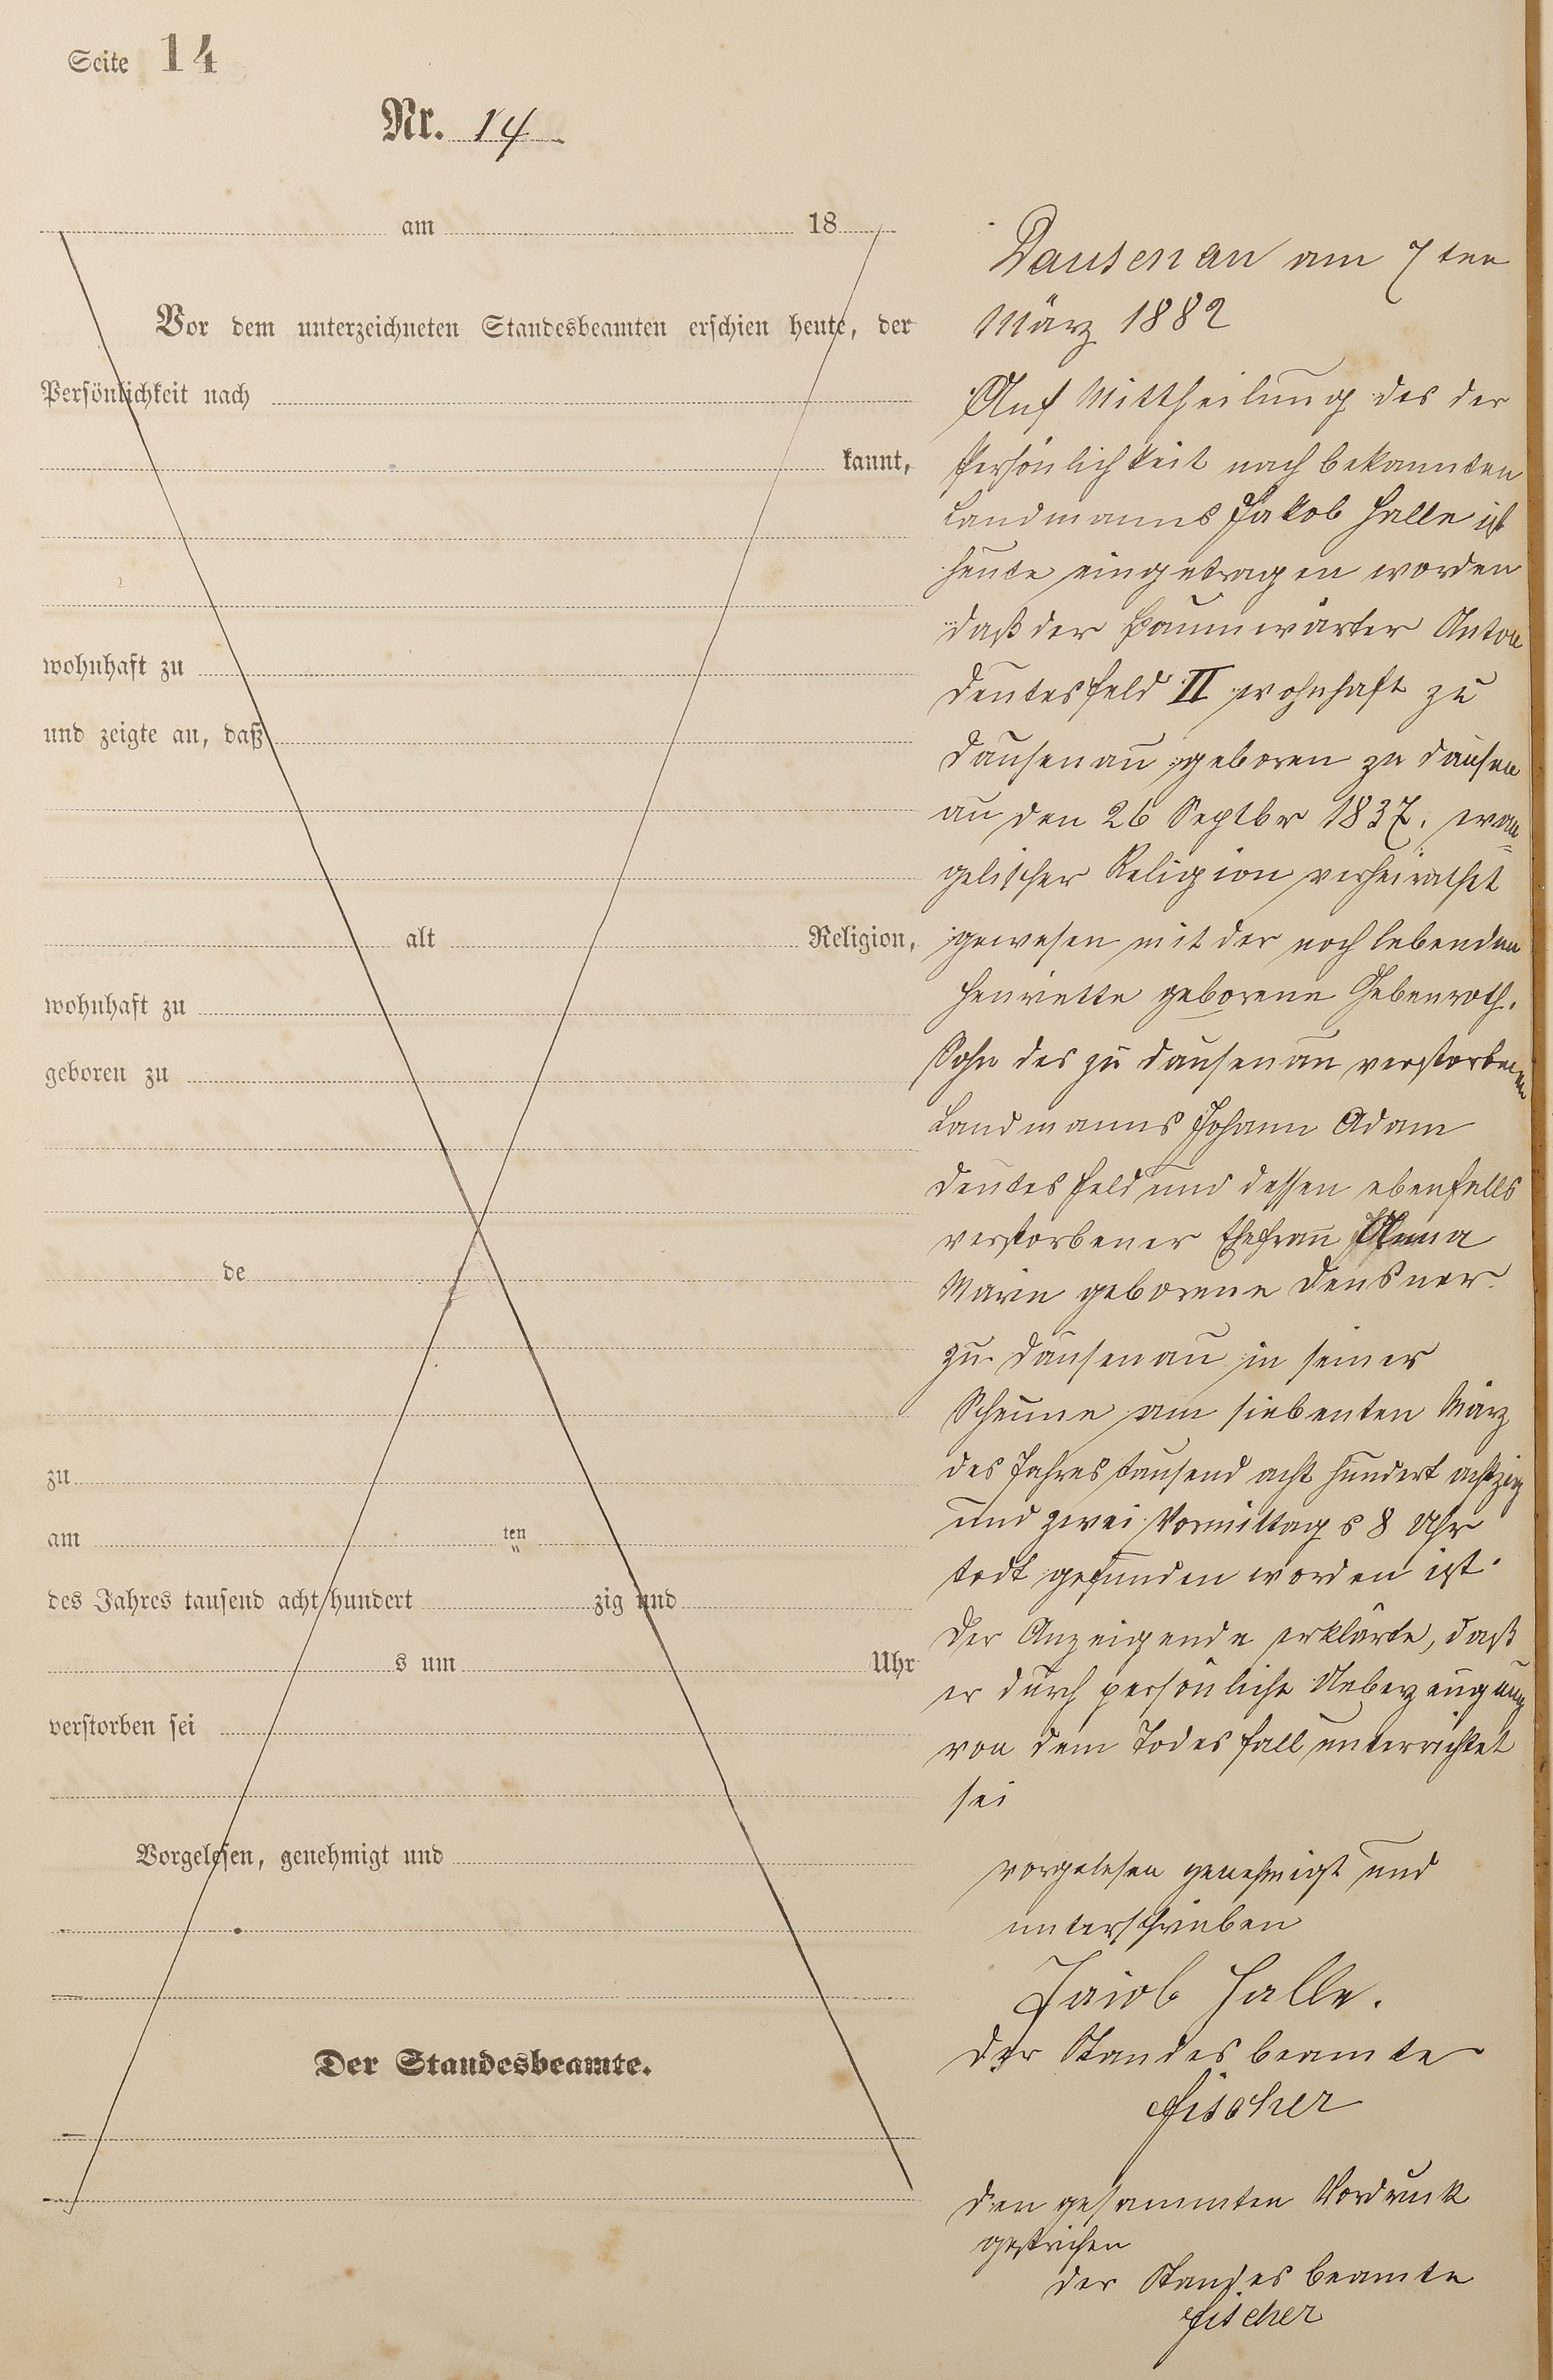 Seite 14
Nr. 14
am 18
Vor dem unterzeichneten Standesbeamten erschien heute, der
Persönlichkeit nach
kannt,
wohnhaft zu
und zeigte an, daß
alt Religion,
wohnhaft zu
geboren zu
de
zu
am ten
des Jahres tausend acht hundert zig und
s um Uhr
verstorben sei
Vorgelesen, genehmigt und
Der Standesbeamte.
Dausenau am 7ten
März 1882
Auf Mittheilung des der
Persönlichkeit nach bekannten
Landmanns Jakob Halle ist
heute eingetragen worden
daß der Baumwärter Anton
Deutesfeld II wohnhaft zu
Dausenau geboren zu Dausen
au den 26 Septbr 1837. evan
gelischer Religion verheirathet
gewesen mit der noch lebenden
Henriette geborene Gebenroth.
Sohn des zu Dausenau verstorbenen
Landmanns Johann Adam
Deutesfeld und dessen ebenfalls
verstorbener Ehefrau Anna
Marie geborene Densner
zu Dausenau in seiner
Scheune am siebenten März
des Jahres tausend acht hundert achtzig
und zwei Vormittags 8 Uhr
todt gefunden worden ist.
Der Anzeigende erklärte, daß
er durch persönliche Ueberzeugung
von dem Todesfall unterrichtet
sei
vorgelesen genehmigt und
unterschrieben
Jacob Halle.
Der Standesbeamte
Fischer
Den gesammten Vordruck
gestrichen
Der Standesbeamte
Fischer